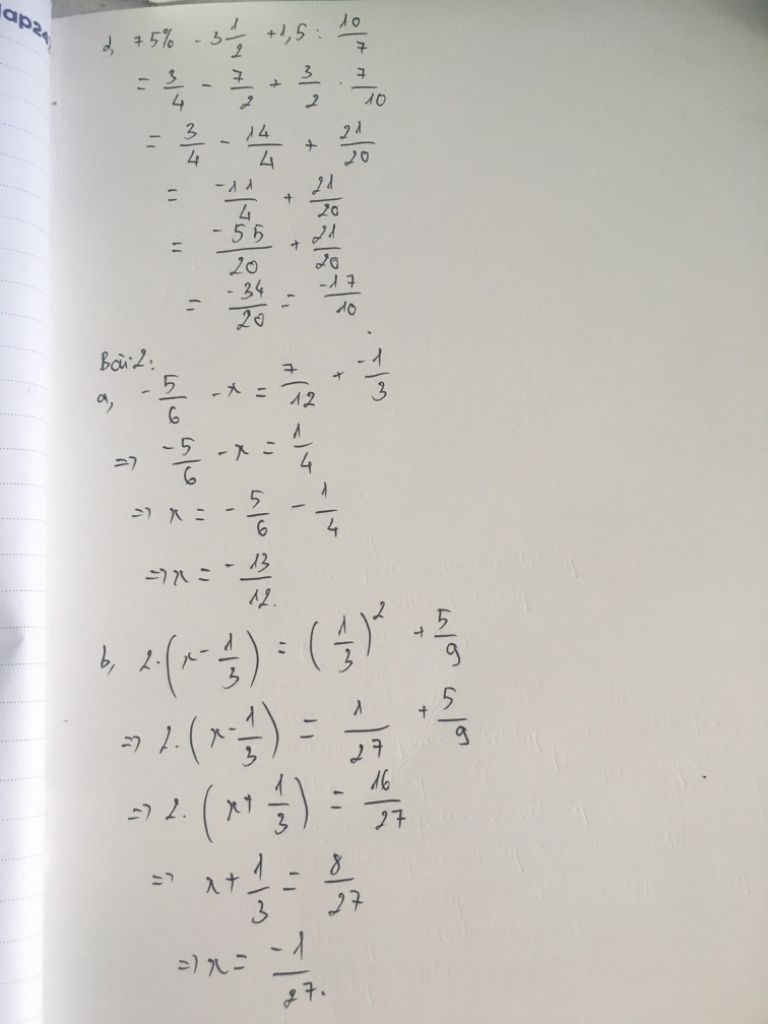 d, 75% - 3 1/2 + 1,5 : 10/7
= 3/4 - 7/2 + 3/2 . 7/10
= 3/4 - 14/4 + 21/20
= -11/4 + 21/20
= -55/20 + 21/20
= -34/20 = -17/10
Bài 2:
a, -5/6 - x = 7/12 + -1/3
=> -5/6 - x = 1/4
=> x = -5/6 - 1/4
=> x = -13/12.
b, 2.(x - 1/3) = (1/3)² + 5/9
=> 2.(x - 1/3) = 1/27 + 5/9
=> 2.(x + 1/3) = 16/27
=> x + 1/3 = 8/27
=> x = -1/27.